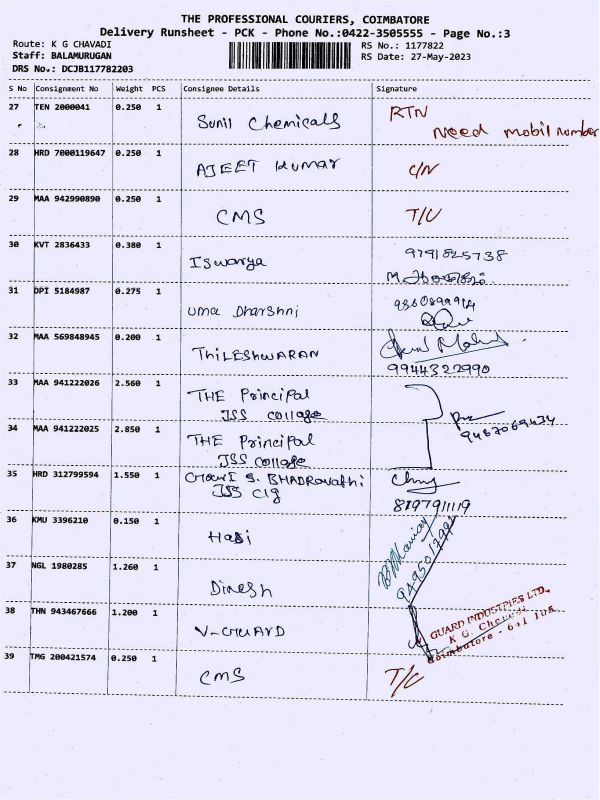 THE PROFESSIONAL COURIERS, COIMBATORE
Delivery Runsheet - PCK - Phone No.:0422-3505555 - Page No.:3
Route: K G CHAVADI
RS No.: 1177822
Staff: BALAMURUGAN
RS Date: 27-May-2023
DRS No.: DCJB117782203
S No Consignment No Weight PCS Consignee Details Signature
27 TEN 2000041 0.250 1 Sunil Chemicals RTN
Need mobil number
28 HRD 7000119647 0.250 1 AJEET KUMAR C/N
29 MAA 942990890 0.250 1 CMS T/C
30 KVT 2836433 0.380 1 Iswarya 9791825738
31 DPI 5184987 0.275 1 Uma Dharshni
32 MAA 569848945 0.200 1 ThiLEShWARAN
9944322990
33 MAA 941222026 2.560 1 THE Principal
JSS collage
34 MAA 941222025 2.850 1 THE Principal 9487069434
JSS collage
35 HRD 312799594 1.550 1 S. BHADRavathi
JSS Clg 8197911119
36 KMU 3396210 0.150 1 Hari
37 NGL 1980285 1.260 1 Dinesh
38 THN 943467666 1.200 1 V-GUARD
GUARD INDUSTRIES LTD.,
K G. Chavadi
Coimbatore - 641 105
39 TMG 200421574 0.250 1 CMS T/C